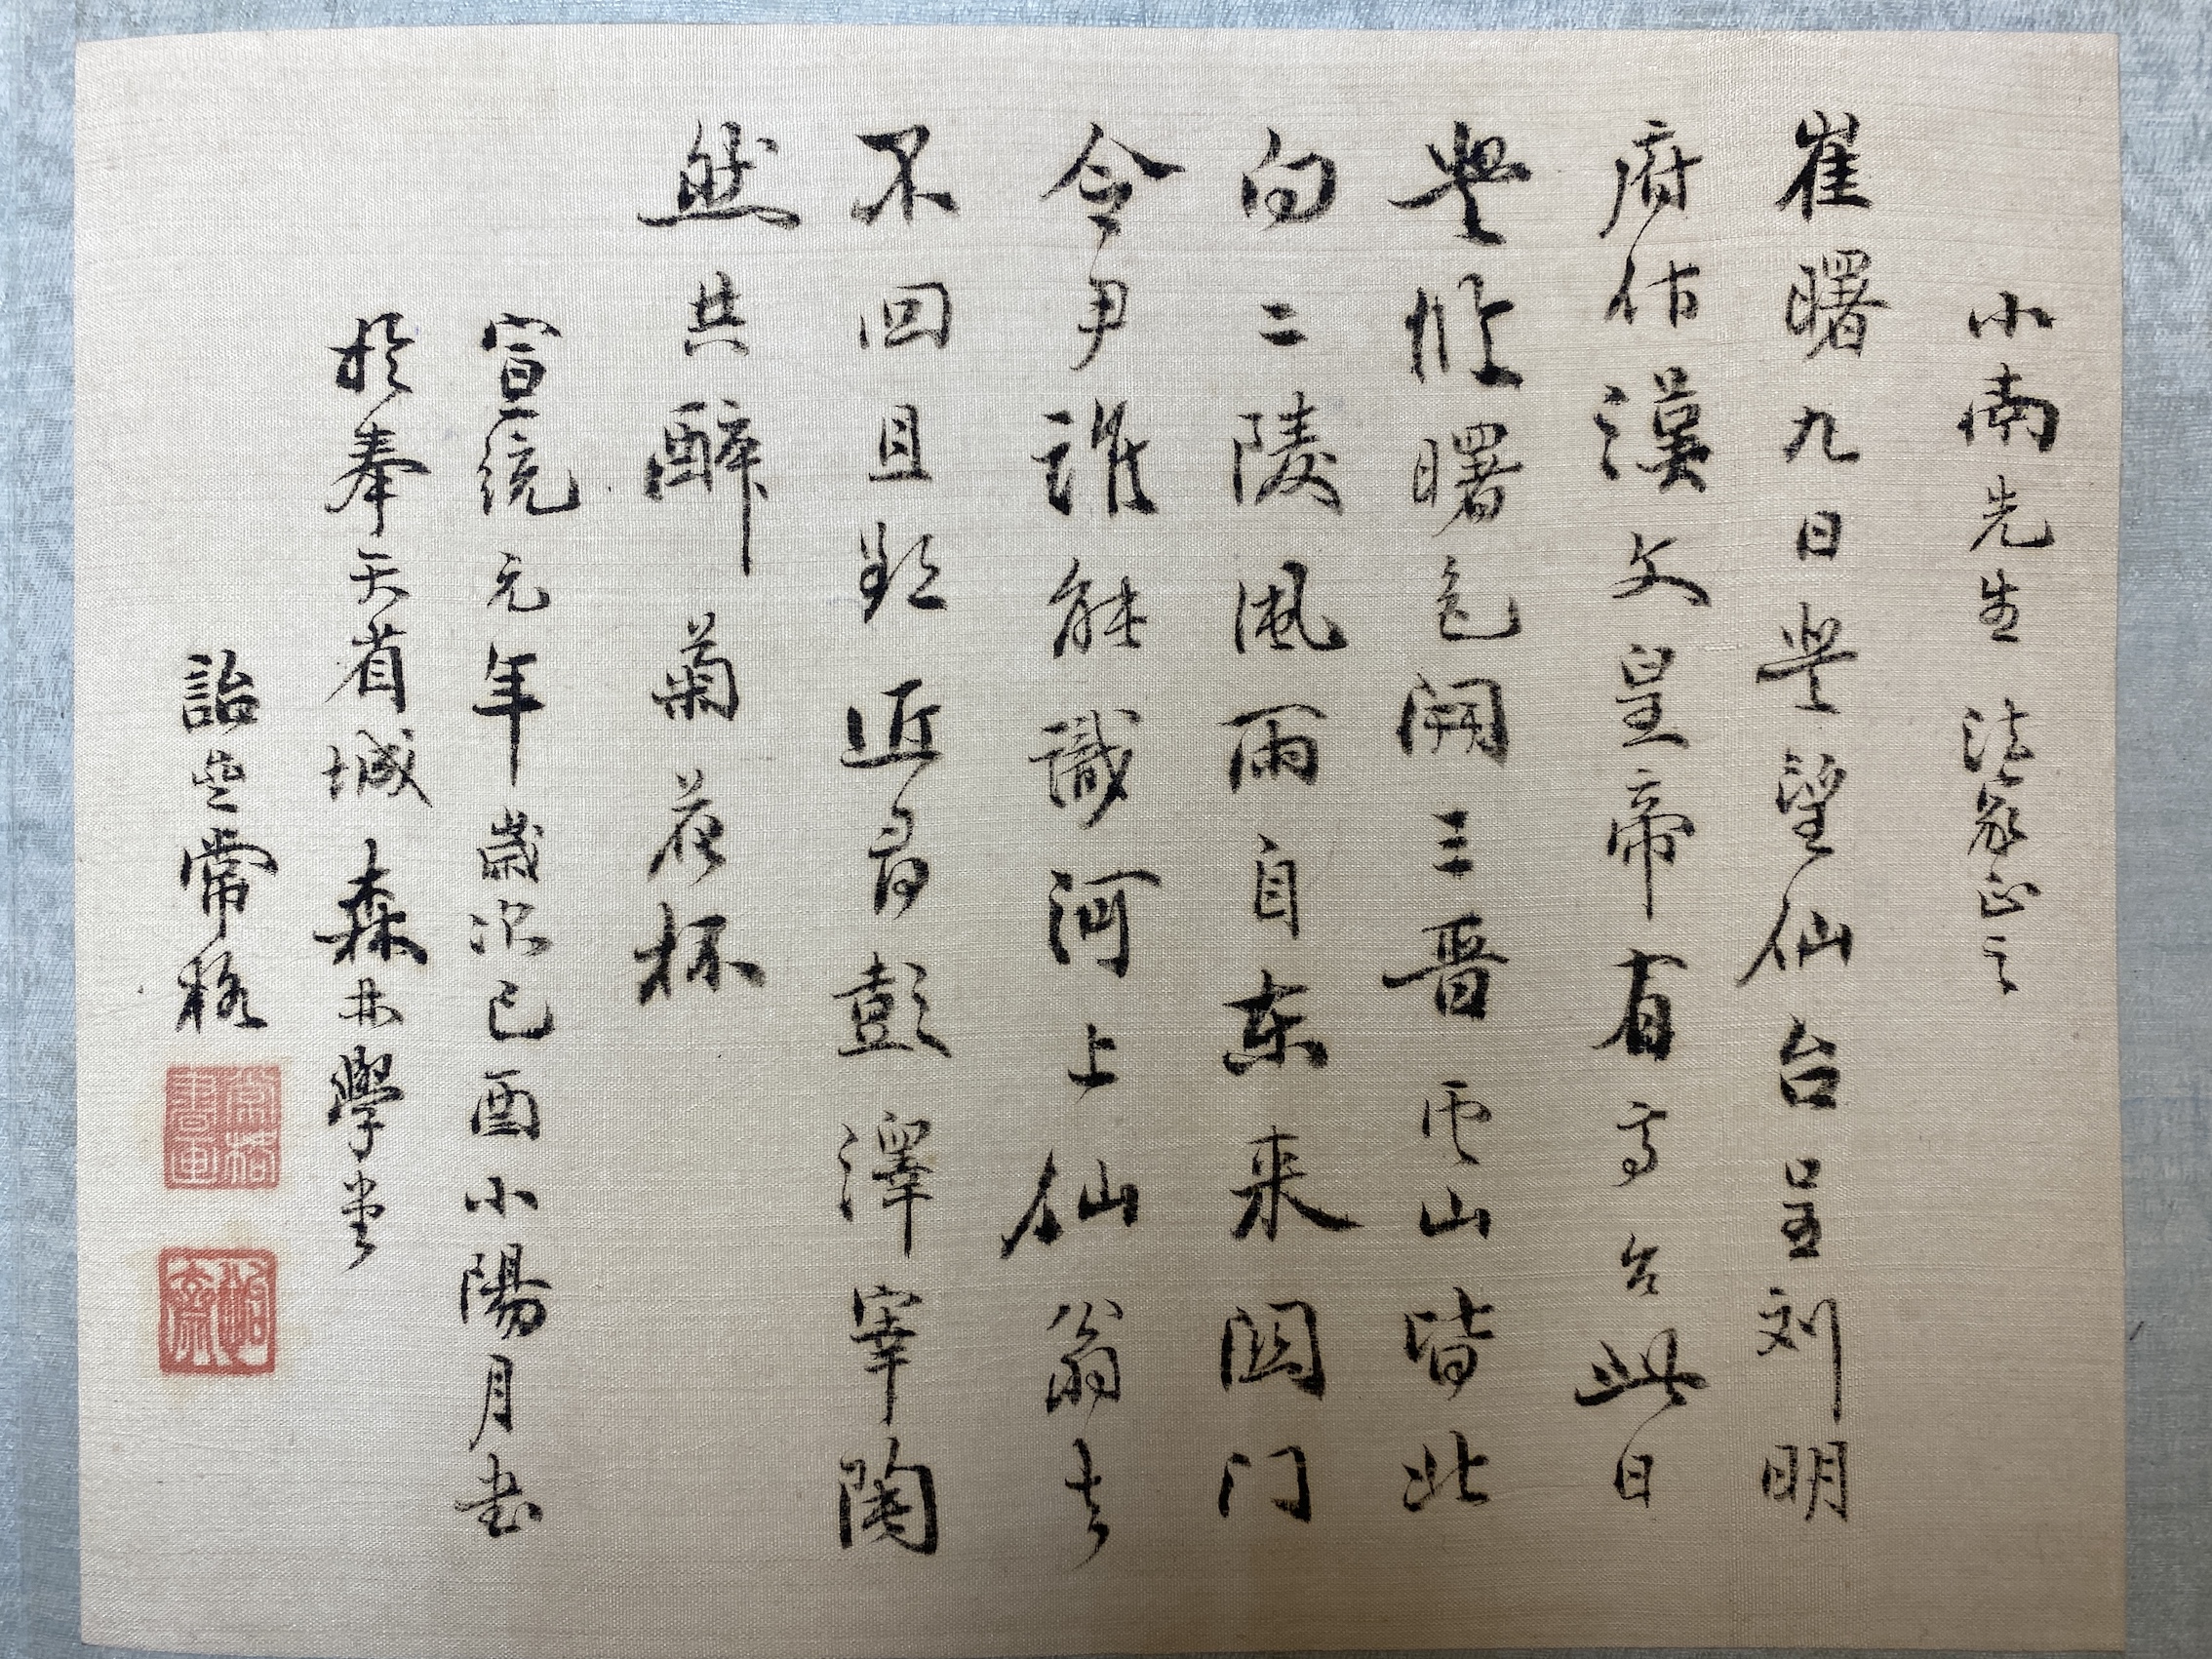 小南先生 法家正之
崔曙九日登望仙台呈刘明
府漢文皇帝有高台此日
登臨曙色開三晉雲山皆北
向二陵風雨自东来関门
令尹誰能識河上仙翁去
不回且欲近尋彭澤宰陶
然共醉菊花杯
宣統元年歲次己酉小陽月書
於奉天省城森林學堂
詒常格